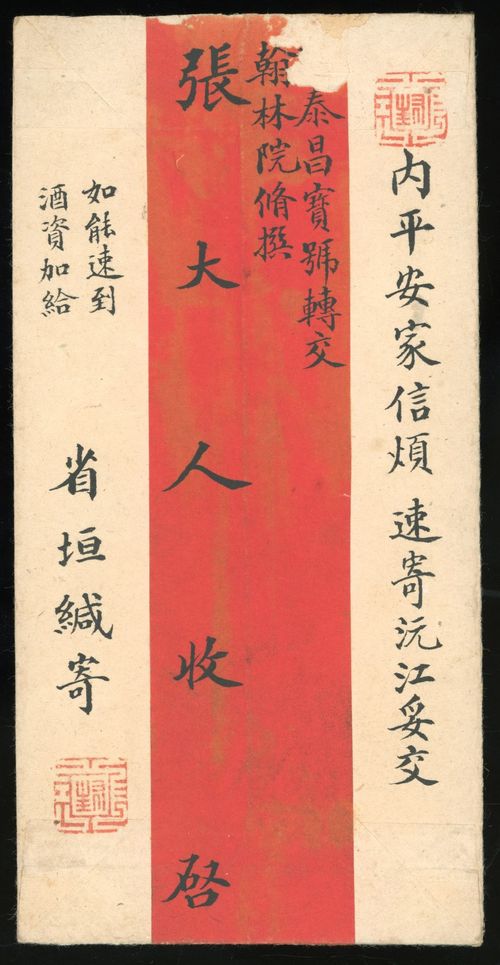 内平安家信煩 速寄沅江妥交
泰昌寶號轉交
翰林院脩撰
張大人收啟
如能速到
酒資加給
省垣緘寄